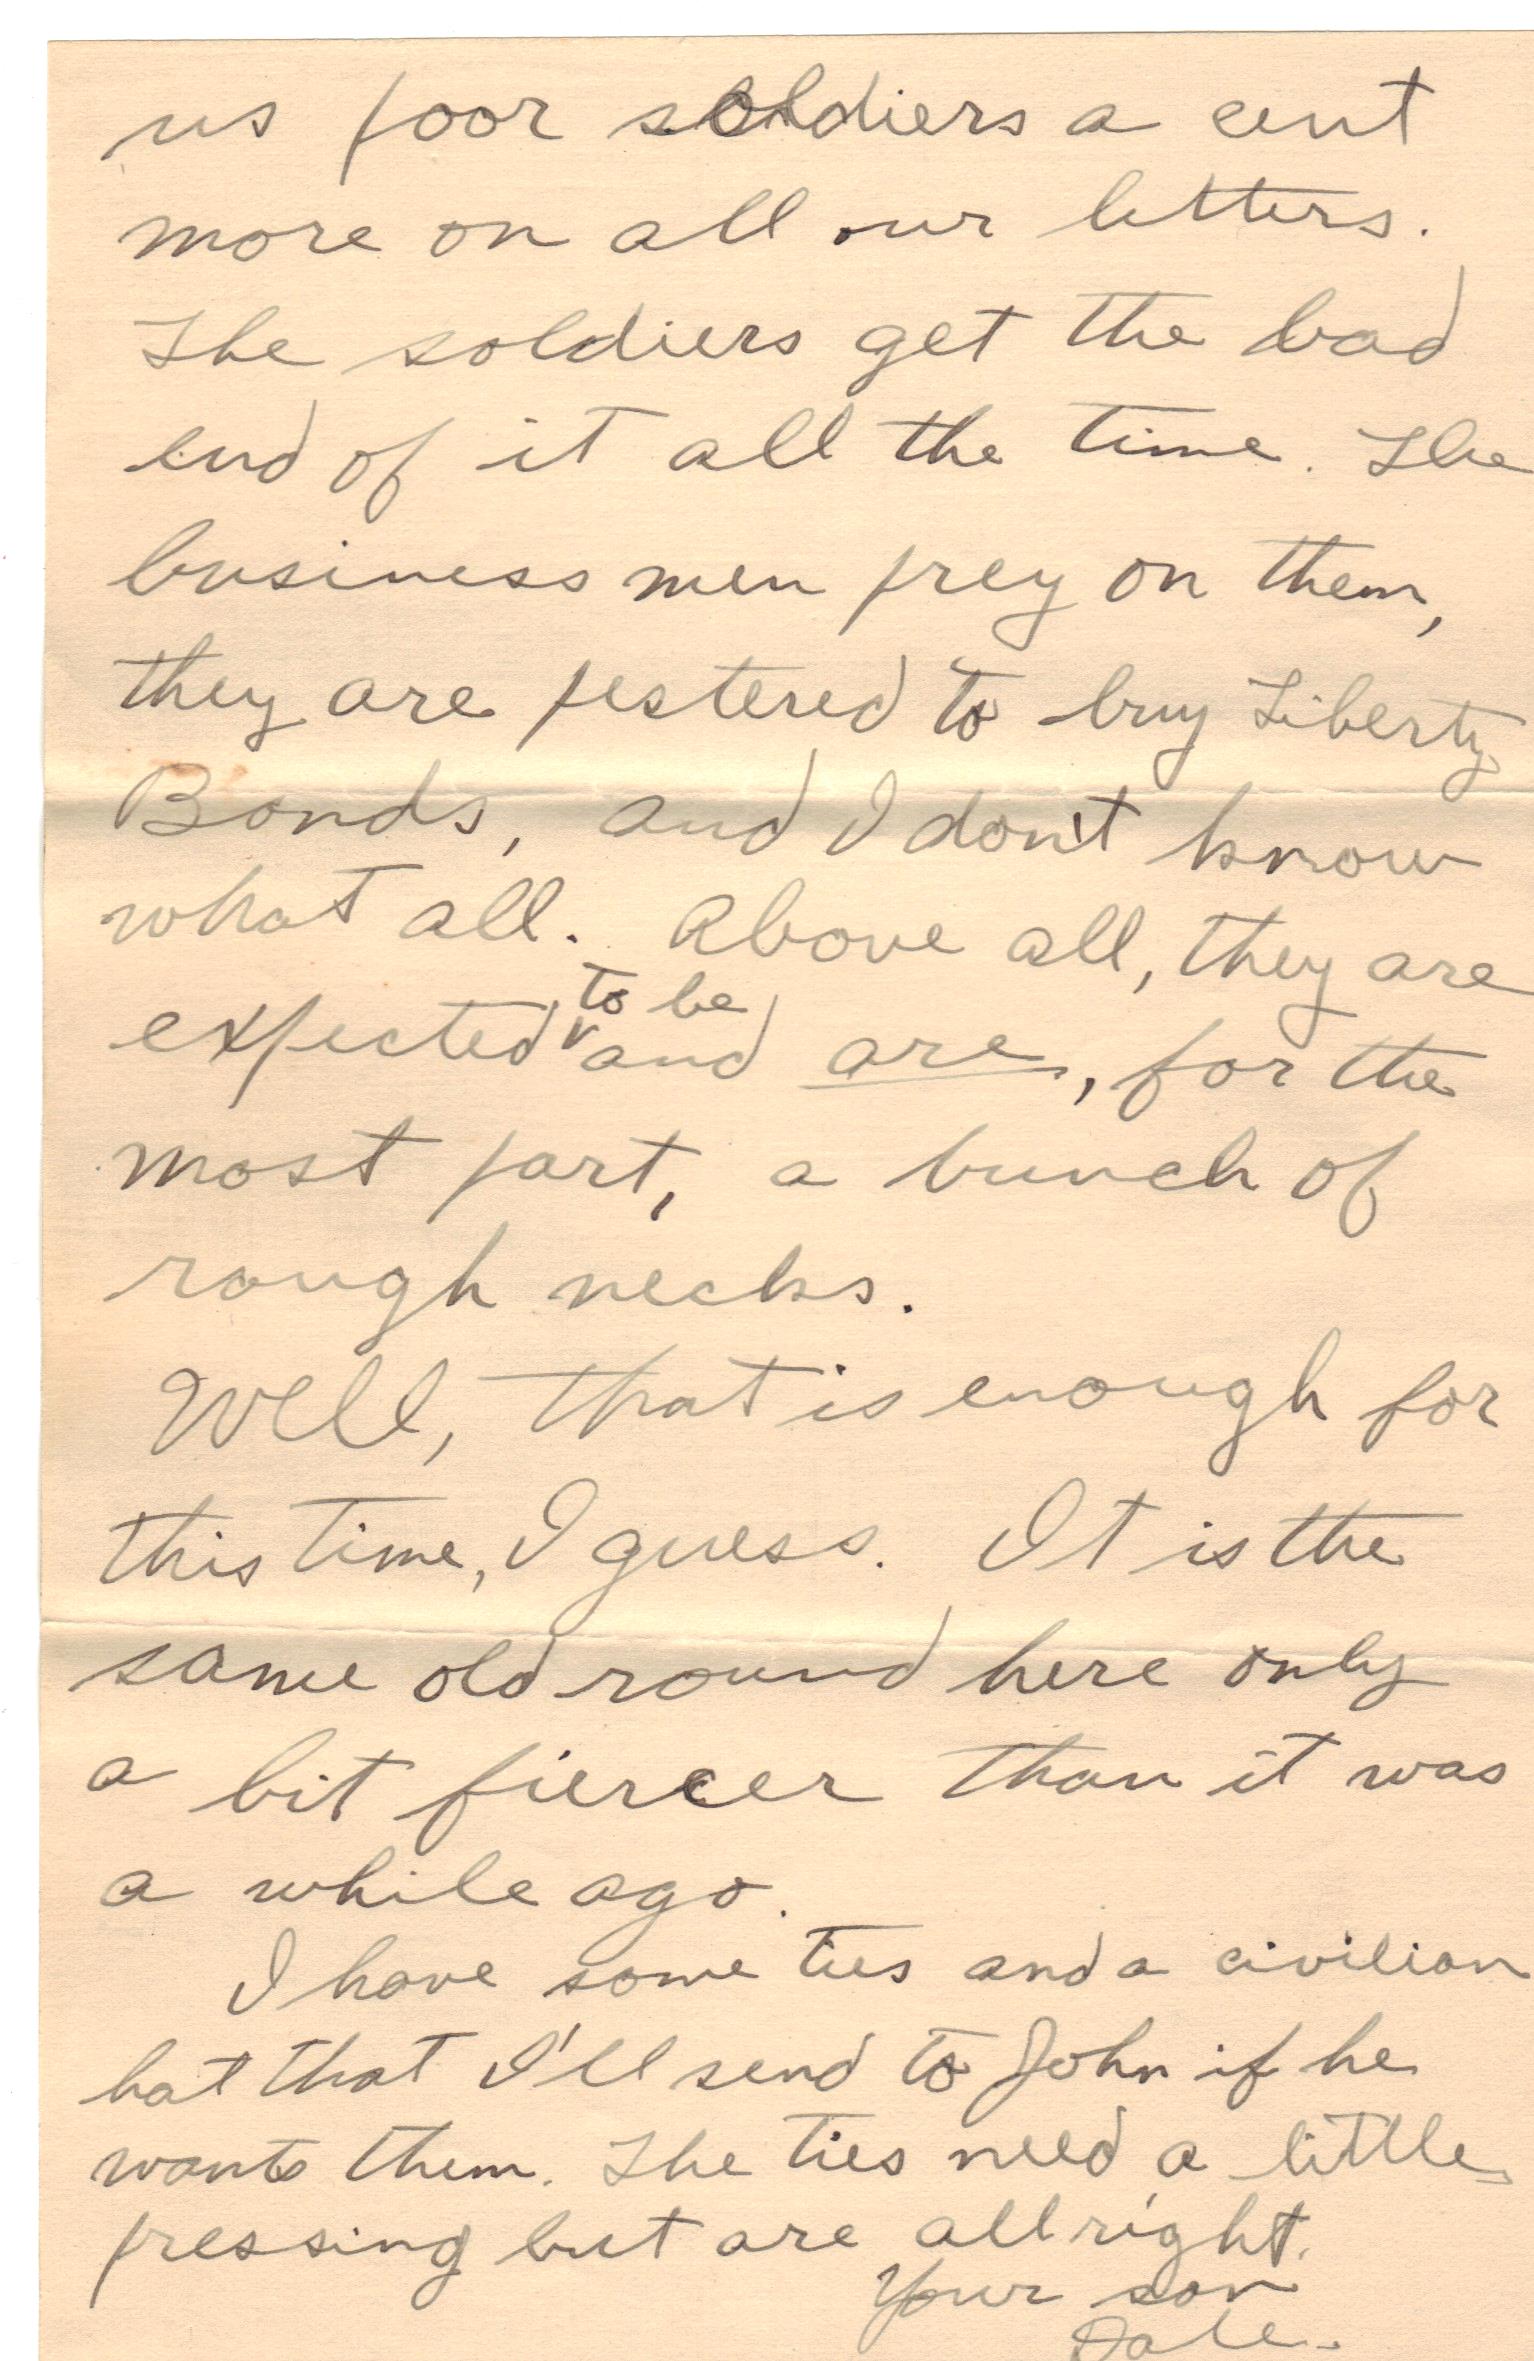 us poor soldiers a cent
more on all our letters.
The soldiers get the bad
end of it all the time. The
business men prey on them,
they are pestered to buy Liberty
Bonds, and I don't know
what all. Above all, they are
expected to be and are, for the
most part, a bunch of
rough necks.
Well, that is enough for
this time, I guess. It is the
same old round here only
a bit fiercer than it was
a while ago.
I have some ties and a civilian
hat that I'll send to John if he
wants them. The ties need a little
pressing but are all right.
Your son
Dale.